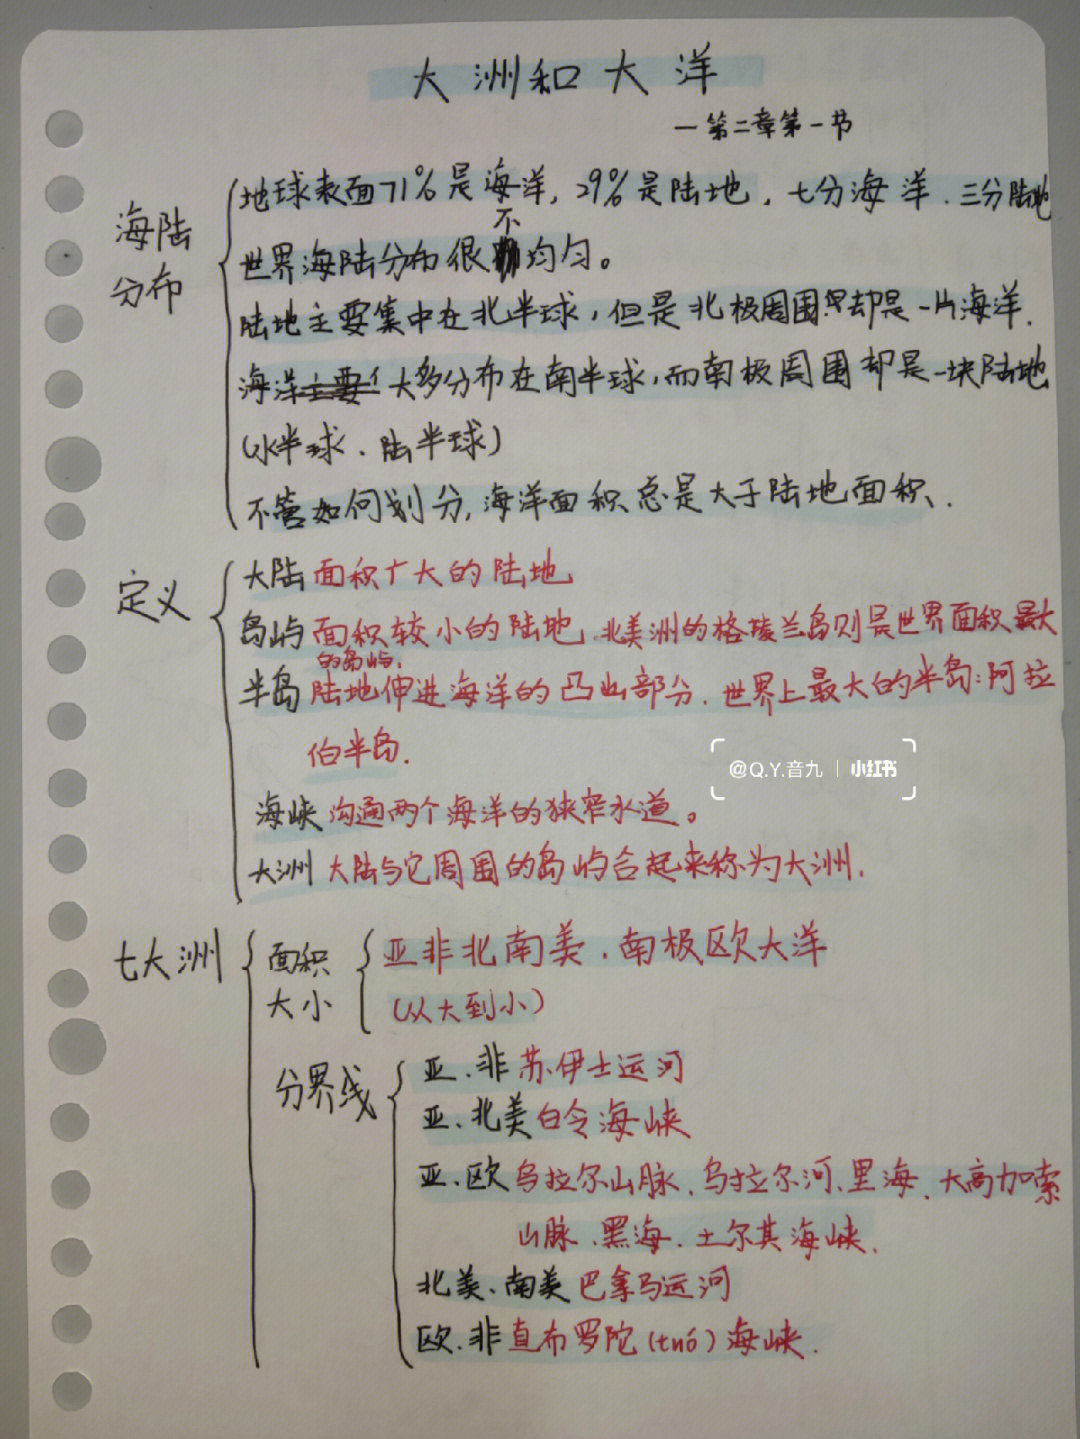 大洲和大洋
—第二章第一节
海陆分布
地球表面71%是海洋,29%是陆地,七分海洋.三分陆地
世界海陆分布很不均匀。
陆地主要集中在北半球,但是北极周围却是一片海洋.
海洋大多分布在南半球,而南极周围却是一块陆地
(水半球、陆半球)
不管如何划分,海洋面积总是大于陆地面积.
定义
大陆 面积广大的陆地
岛屿 面积较小的陆地.北美洲的格陵兰岛则是世界面积最大
的岛屿.
半岛 陆地伸进海洋的凸出部分.世界上最大的半岛:阿拉
伯半岛.
@Q.Y.音九 | 小红书
海峡 沟通两个海洋的狭窄水道。
大洲 大陆与它周围的岛屿合起来称为大洲.
七大洲
面积大小
亚非北南美.南极欧大洋
(从大到小)
分界线
亚.非 苏伊士运河
亚.北美 白令海峡
亚.欧 乌拉尔山脉、乌拉尔河、里海、大高加索
山脉、黑海、土尔其海峡.
北美、南美 巴拿马运河
欧.非 直布罗陀(tuó)海峡.